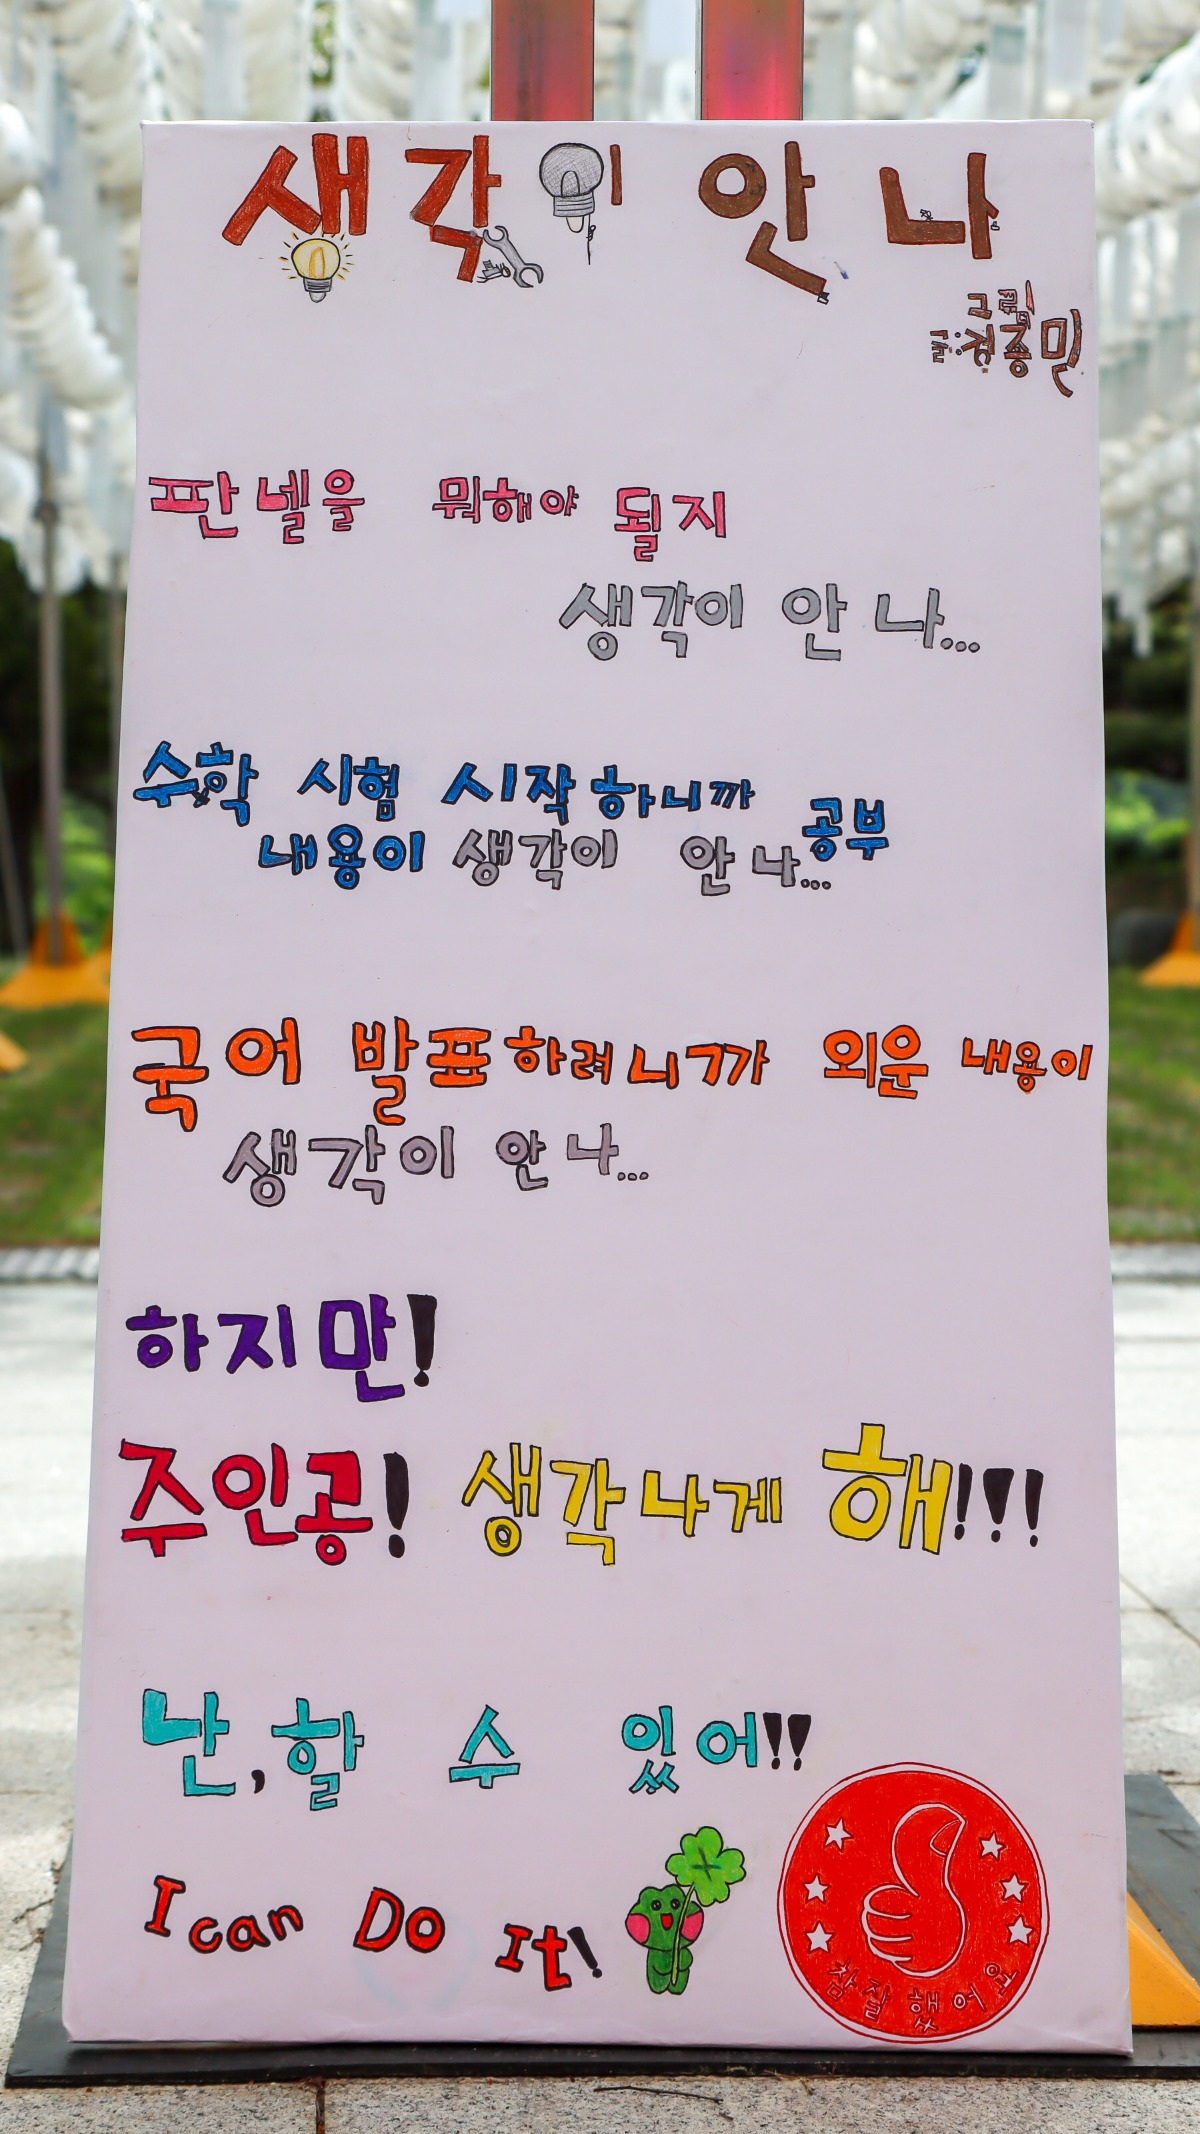 생각이 안 나
그림
판넬을 뭐해야 될지
생각이 안 나...
수학 시험 시작하니까 공부
내용이 생각이 안 나...
국어 발표하려니까 외운 내용이
생각이 안 나...
하지만!
주인공! 생각나게 해!!!
난, 할 수 있어!!
I can Do It!
참 잘 했어요